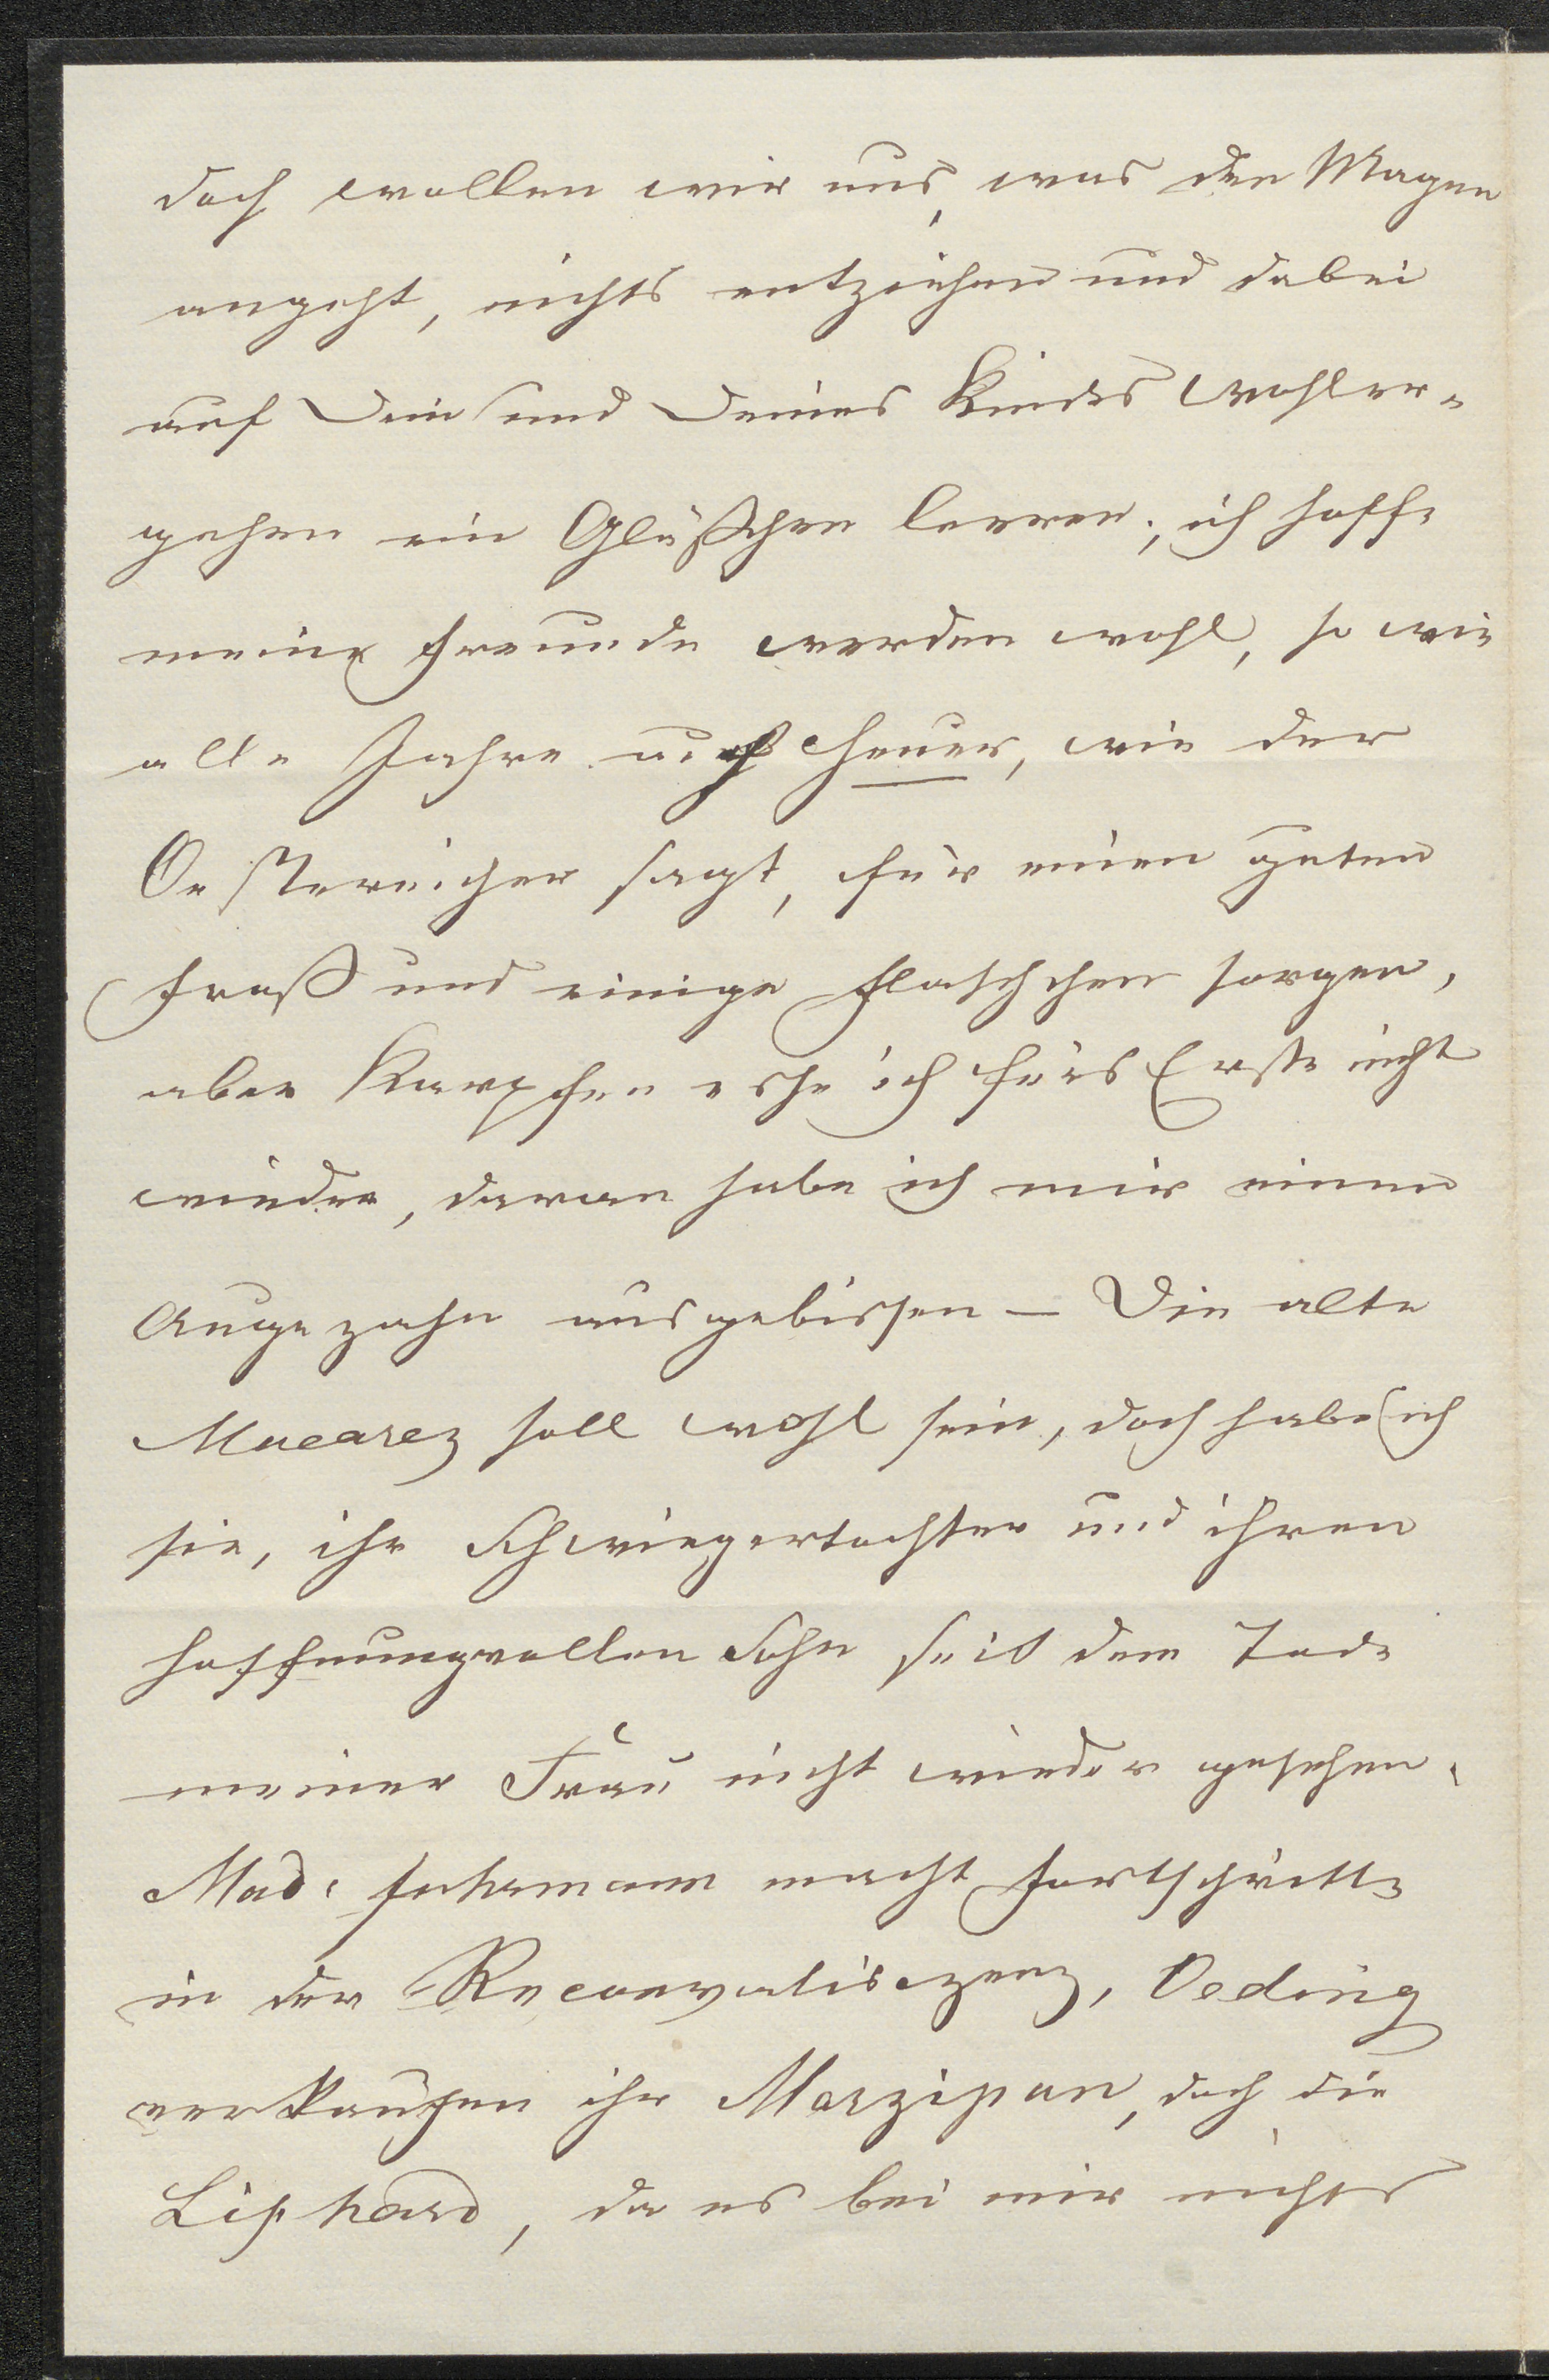 doch wollen wir uns, was den Magen
angeht, nichts entziehen und dabei
auf Dein und Deines Kindes Wohler-
gehen ein Gläßchen leeren; ich hoffe
meine Freunde werden wohl, so wie
alle Jahre auch heuer, wie der
Oestereicher sagt, für einen guten
Fraß und einige Flaschchen sorgen,
aber Karpfen esse ich fürs Erste nicht
wieder, daran habe ich mir einen
Augezahn ausgebissen – Die alte
Mucarez soll wohl sein, doch habe ich
sie, ihr Schwiegertochter und ihren
hoffnungvollen Sohn seit dem Tode
meiner Frau nicht wieder gesehen.
Mad. Fuhrmann macht Fortschritte
in der Reconvalisczenz, Oeding
verkaufen ihr Marzipan, doch die
Liphard, da es bei mir nichts